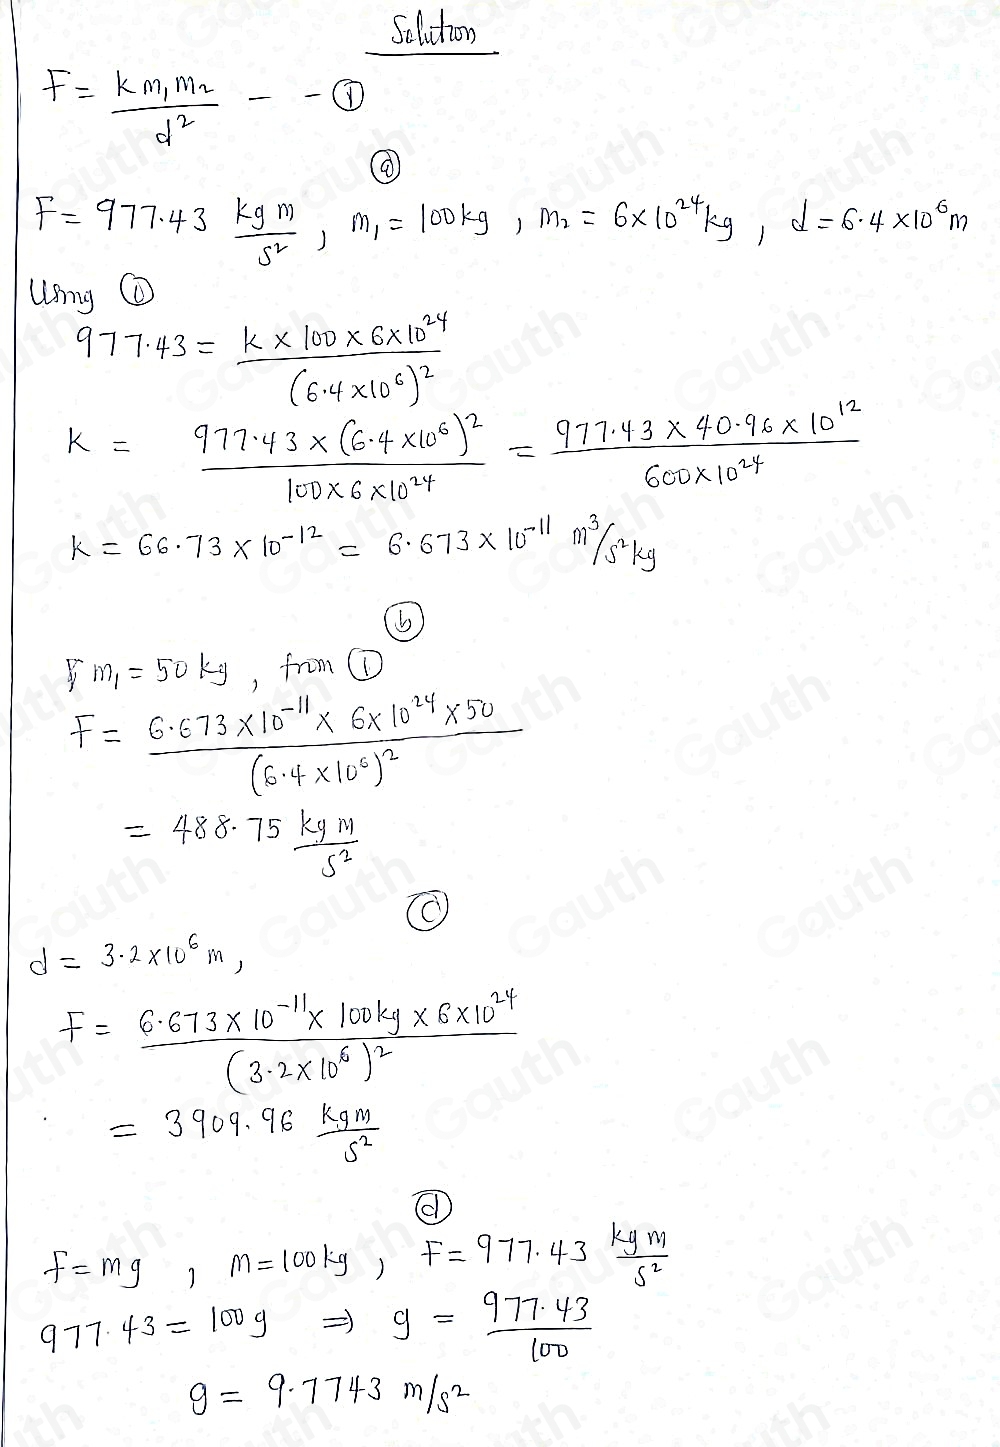 Solution
F = k m₁ m₂ / d² - - ①
ⓐ
F = 977.43 kg m / s² , m₁ = 100kg , m₂ = 6×10²⁴kg , d = 6.4×10⁶m
Using ①
977.43 = k × 100 × 6×10²⁴ / (6.4×10⁶)²
k = 977.43 × (6.4×10⁶)² / 100×6×10²⁴ = 977.43 × 40.96 × 10¹² / 600×10²⁴
k = 66.73 × 10⁻¹² = 6.673 × 10⁻¹¹ m³/s²kg
ⓑ
m₁ = 50 kg , from ①
F = 6.673×10⁻¹¹ × 6×10²⁴ × 50 / (6.4×10⁶)²
= 488.75 kg m / s²
ⓒ
d = 3.2×10⁶ m ,
F = 6.673×10⁻¹¹ × 100kg × 6×10²⁴ / (3.2×10⁶)²
= 3909.96 kgm / s²
ⓓ
F = mg , m = 100kg , F = 977.43 kg m / s²
977.43 = 100g ⇒ g = 977.43 / 100
g = 9.7743 m/s²